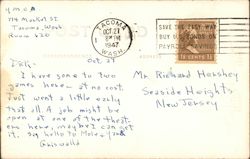 Y M C A
714 Market St
Tacoma, Wash
Room 620
TACOMA
OCT 27
1947
WASH.
SAVE THE EASY WAY
BUY U.S. BONDS ON
PAYROLL SAVINGS
Oct. 27
I have some to two
more at no cost.
Just went a little
that all. A job might be
open at one of the theat-
ers here, maybe I can get
it. Say hello to
Griswold
Mr. Richard Hershey
Seaside Heights
New Jersey